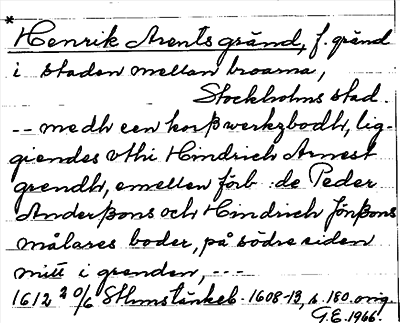 * Henrik Arents gränd, f. gränd
i staden mellan broarna,
Stockholms stad.
-- medh een korßwerkzbodh, lig-
giendes vthi Hindrich Arnest
grendh, emellen förb:de Peder
Anderßons och Hindrich Jönßons
målares boder, på södre siden
mitt i grenden, ---
1612 20/6 Sthmstänkeb. 1608-13, s. 180. orig.
G.E. 1966.